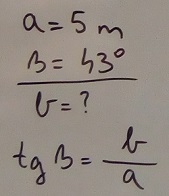 a = 5 m
β = 43°
b = ?
tg β = b/a